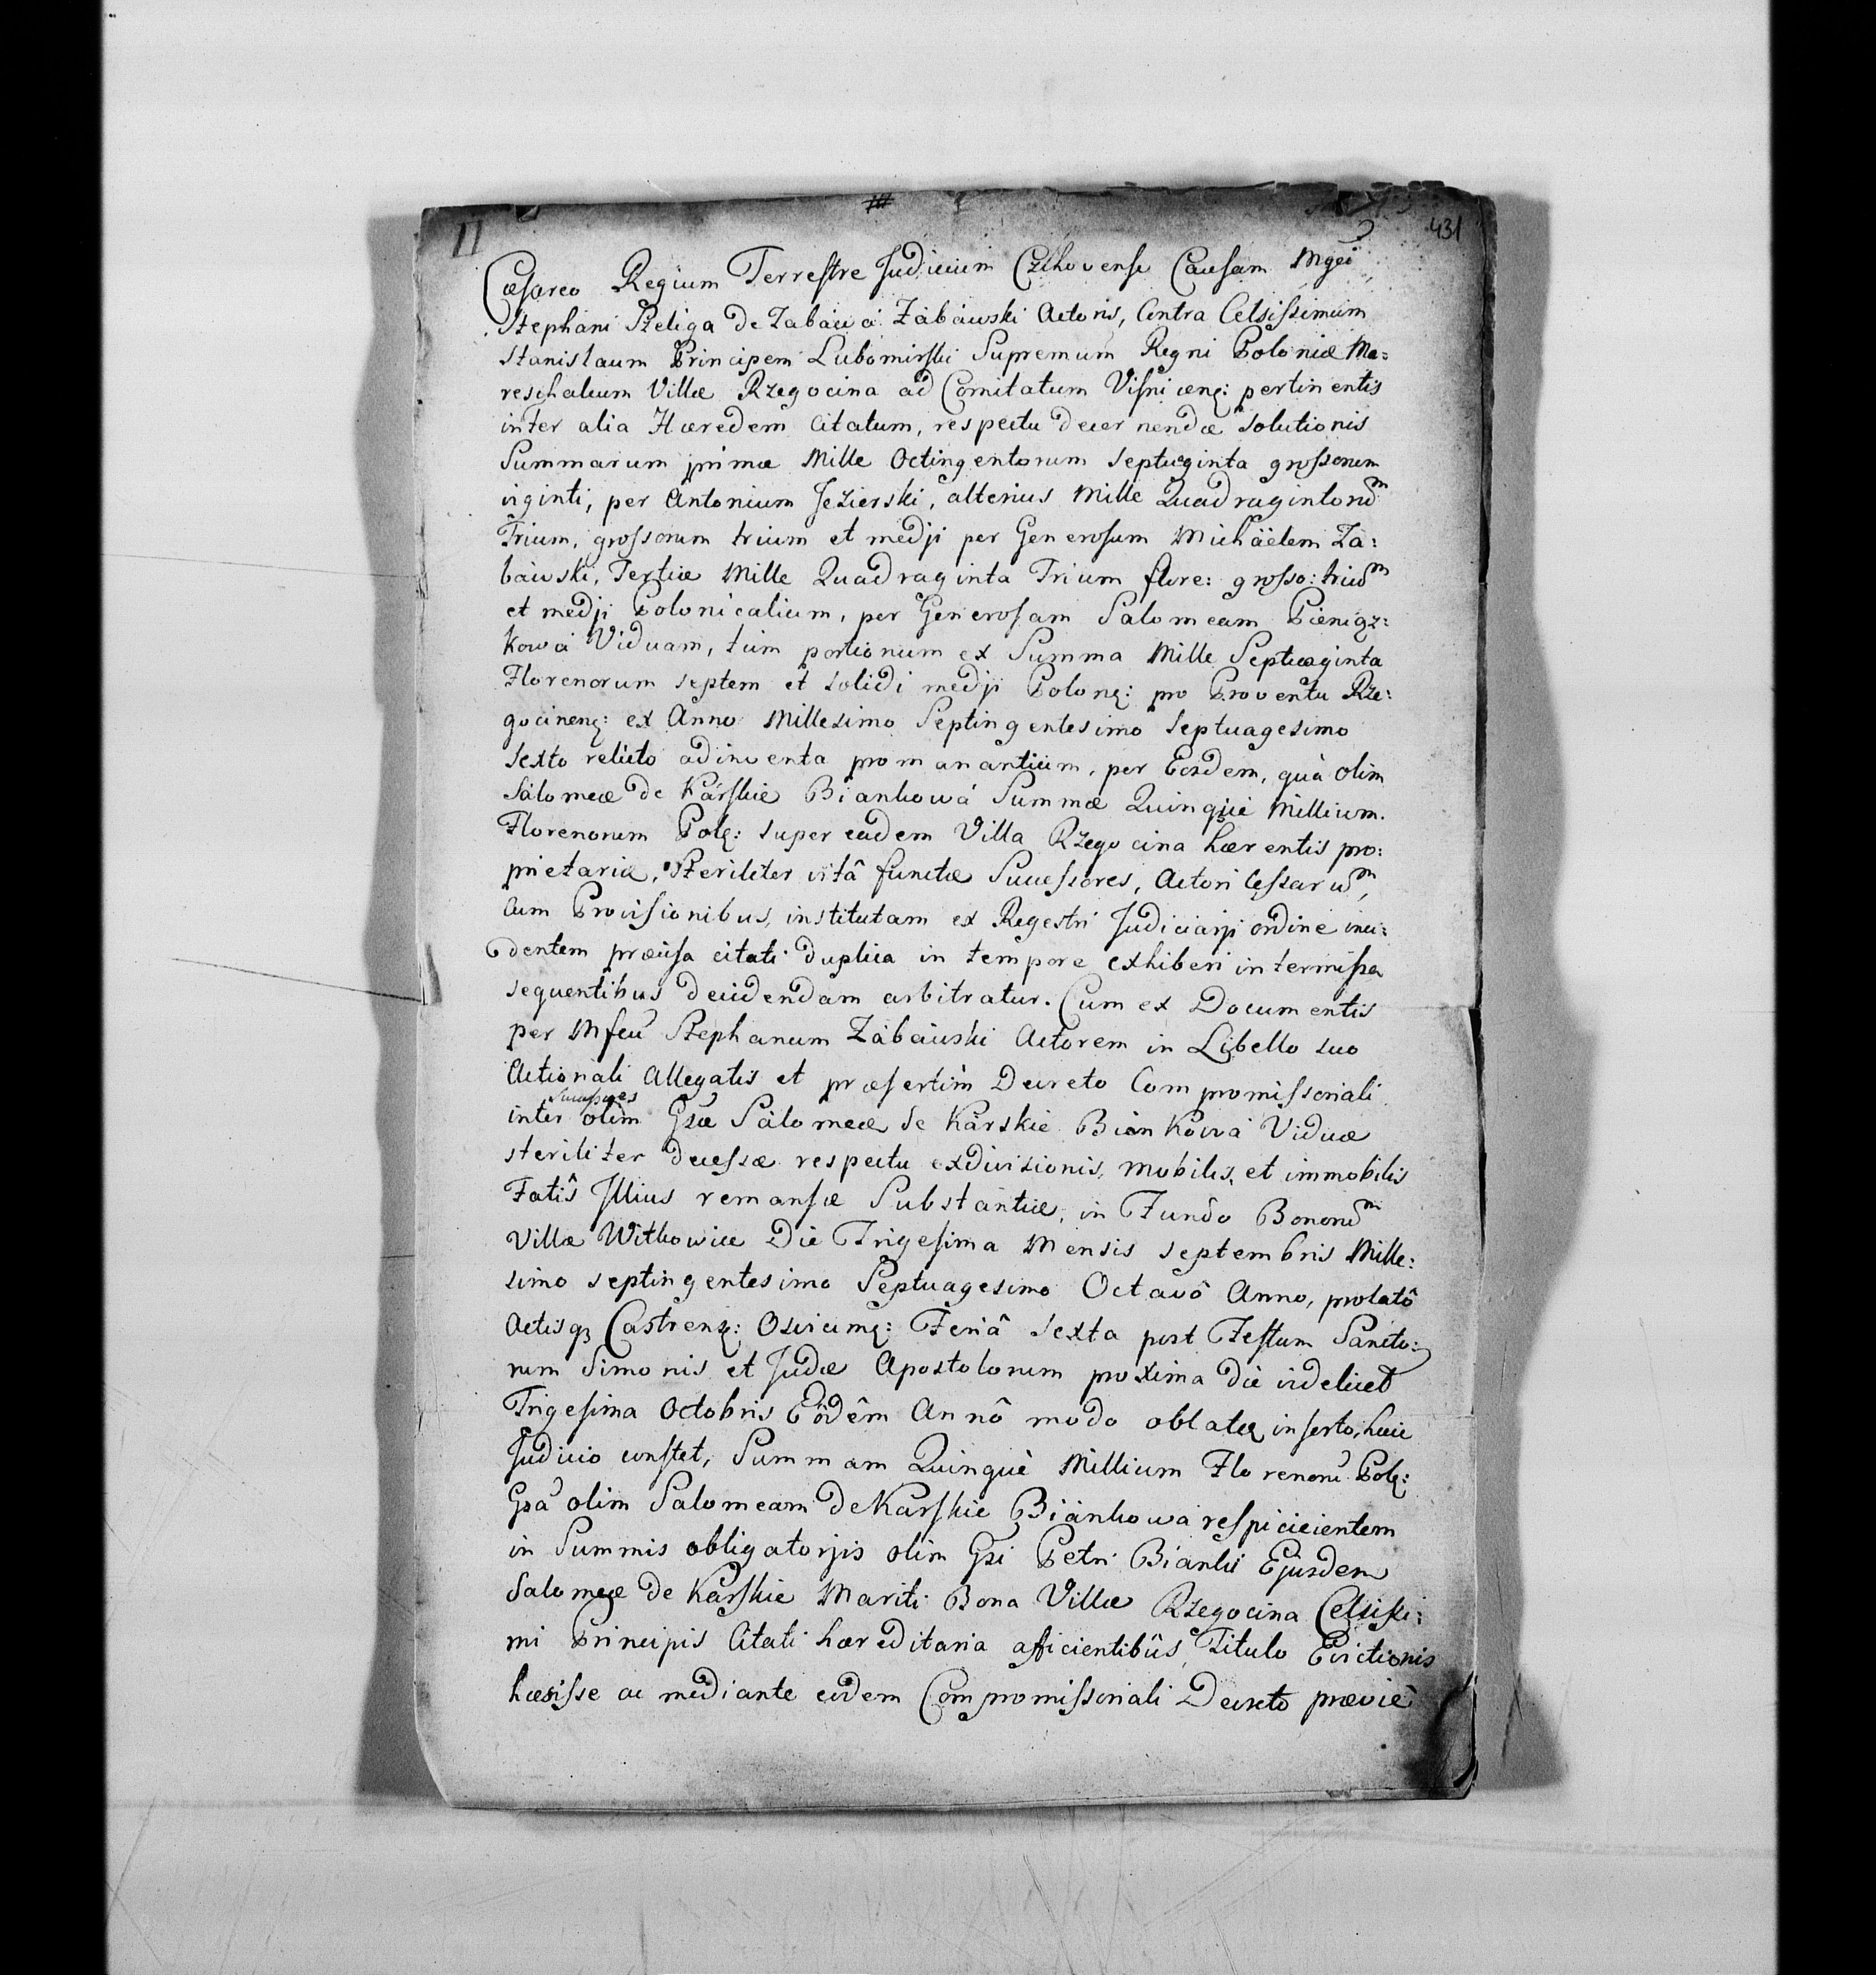 11
431
Cæsareo Regium Terrestre Judicium Czchoviense Causam Mgci
Stephani Szeliga de Zabawa Zabawski Actoris, Contra Celsissimum
Stanislaum Principem Lubomirski Supremum Regni Poloniæ Ma:
reschalcum Villæ Rzegocina ad Comitatum Visnicenɛ: pertinentis
inter alia Hæredem Citatum, respectu decernendæ solutionis
Summarum primæ Mille Octingentorum septuaginta grossorum
viginti, per Antonium Jezierski, alterius Mille Quadragintorum
Trium, grossorum trium et medji per Generosum Michäelem Za:
bawski, Tertiæ Mille Quadraginta Trium flore: grosso: trium
et medji Polonicalium, per Generosam Salomeam Pieniąz:
kowa Viduam, tum portionum ex Summa Mille Septuaginta
Florenorum septem et solidi medji Polonɛ: pro Proventu Rze:
gocinenɛ: ex Anno Millesimo Septingentesimo Septuagesimo
Sexto relicto adinventa promanantium, per Eosdem, quà olim
Salomeæ de Karskie Biankowa Summæ Quinque Millium.
Florenorum Polɛ: super eadem Villa Rzegocina hærentis pro:
prietariæ, Steriliter vitâ functæ Successores, Actori Cessarum,
Cum Provisionibus, institutam ex Regestri Judiciarji ordine inci:
dentem præcisa citati duplica in tempore exhiberi intermissa
sequentibus decidendam arbitratur. Cum ex Documentis
per Mfcu Stephanum Zabawski Actorem in Libello suo
Actionali Allegatis et præsertim Decreto Compromissoriali
Successores
inter olim Gsæ Salomeæ de Karskie Biankowa Viduæ
steriliter decessæ respectu exdivisionis, mobilis, et immobilis
Fatis Illius remansæ Substantiæ, in Fundo Bonorum
Villæ Witkowice Die Trigesima Mensis septembris Mille:
simo septingentesimo Septuagesimo Octavô Anno, prolatô
Actisqɜ Castrenɛ: Osviecimɛ: Feriâ sexta post Festum Sancto:
rum Simonis et Judæ Apostolorum proxima die videlicet
Trigesima Octobris Eôdêm Annô modo oblatæ inserto, huic
Judicio constet, Summam Quinquè Millium Florenorum Polɛ:
Gsa olim Salomeam de Karskie Biankowa respicieientem
in Summis obligatorjis olim Gsi Petri Bianki Ejusdem
Salomeæ de Karskie Mariti Bona Villæ Rzegocina Celsissi:
mi Principis Citati hæreditaria afficientibûs, Titulo Evictionis
hæsisse ac mediante eodem Compromissoriali Decreto prævie